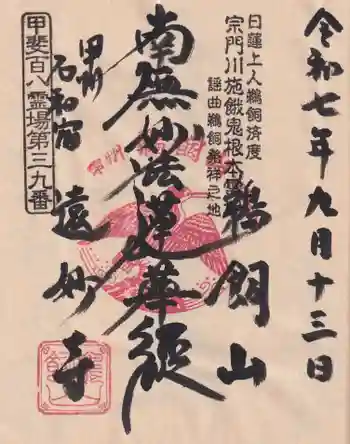 令和七年九月十三日
日蓮上人鵜飼済度
宗門川施餓鬼根本霊
謡曲鵜飼発祥之地
鵜飼山
南無妙法蓮華経
甲州
石和宿
遠妙寺
甲斐百八霊場第三九番